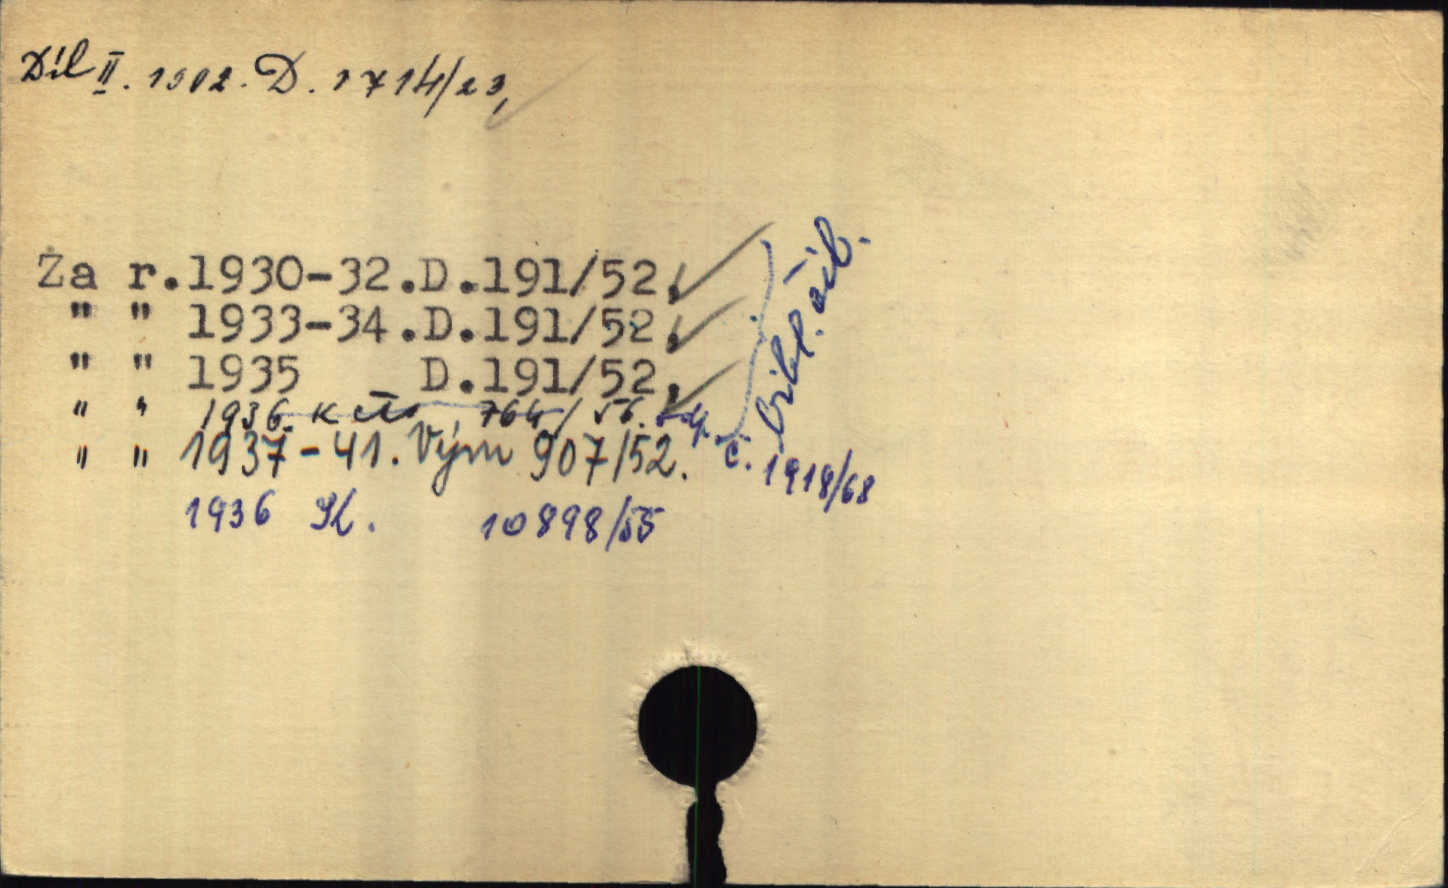 Díl II. 1902. D. 1714/23,
Za r.1930-32.D.191/52.
" " 1933-34.D.191/52.
" " 1935 D.191/52.
" " 1936 764/56. odp.
" " 1937-41. Vým 907/52.
č. 1918/68
1936 10898/55